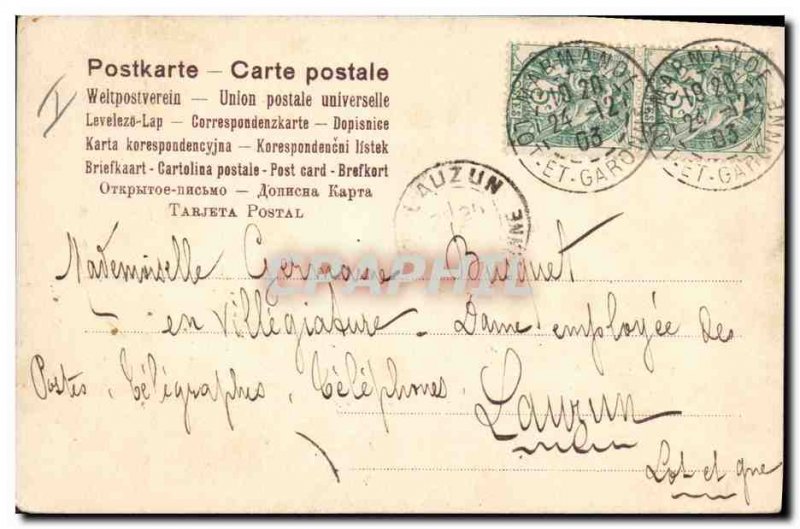 Postkarte – Carte postale
Weltpostverein — Union postale universelle
Levelező-Lap — Correspondenzkarte — Dopisnice
Karta korespondencyjna — Korespondenční lístek
Briefkaart - Cartolina postale - Post card - Brefkort
Открытое-письмо — Дописна Карта
Tarjeta Postal
MARMANDE
19 20
24 -12
03
LOT-ET-GARONNE
MARMANDE
19 20
24 -12
03
LOT-ET-GARONNE
LAUZUN
CPRAPHIL
Mademoiselle Germaine Bucquet
en villégiature - Dame employée des
Postes, Télégraphes, Téléphones,
Lauzun
Lot et Gne